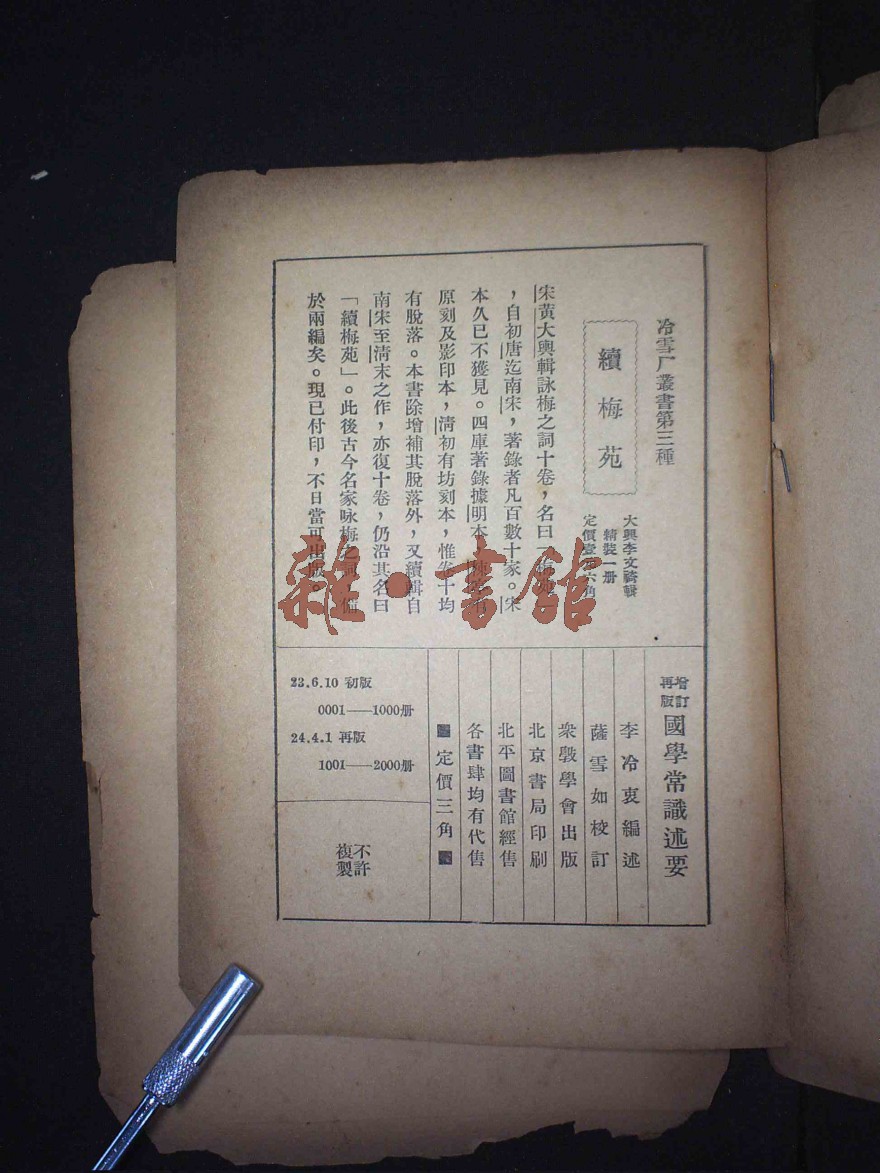 冷雪厂叢書第三種
續梅苑
大興李文䄎輯
精裝一册
定價壹元六角
宋黃大輿輯詠梅之詞十卷，名曰「梅苑」
，自初唐迄南宋，著錄者凡百數十家。宋
本久已不獲見。四庫著錄據明本，陳氏有
原刻及影印本，清初有坊刻本，惟卷十均
有脫落。本書除增補其脫落外，又續輯自
南宋至清末之作，亦復十卷，仍沿其名曰
「續梅苑」。此後古今名家咏梅之詞，備
於兩編矣。現已付印，不日當可出版。
增訂再版 國學常識述要
李冷衷編述
薩雪如校訂
衆彀學會出版
北京書局印刷
北平圖書館經售
各書肆均有代售
定價三角
23.6.10 初版
0001——1000册
24.4.1 再版
1001——2000册
不許複製
雜·書館